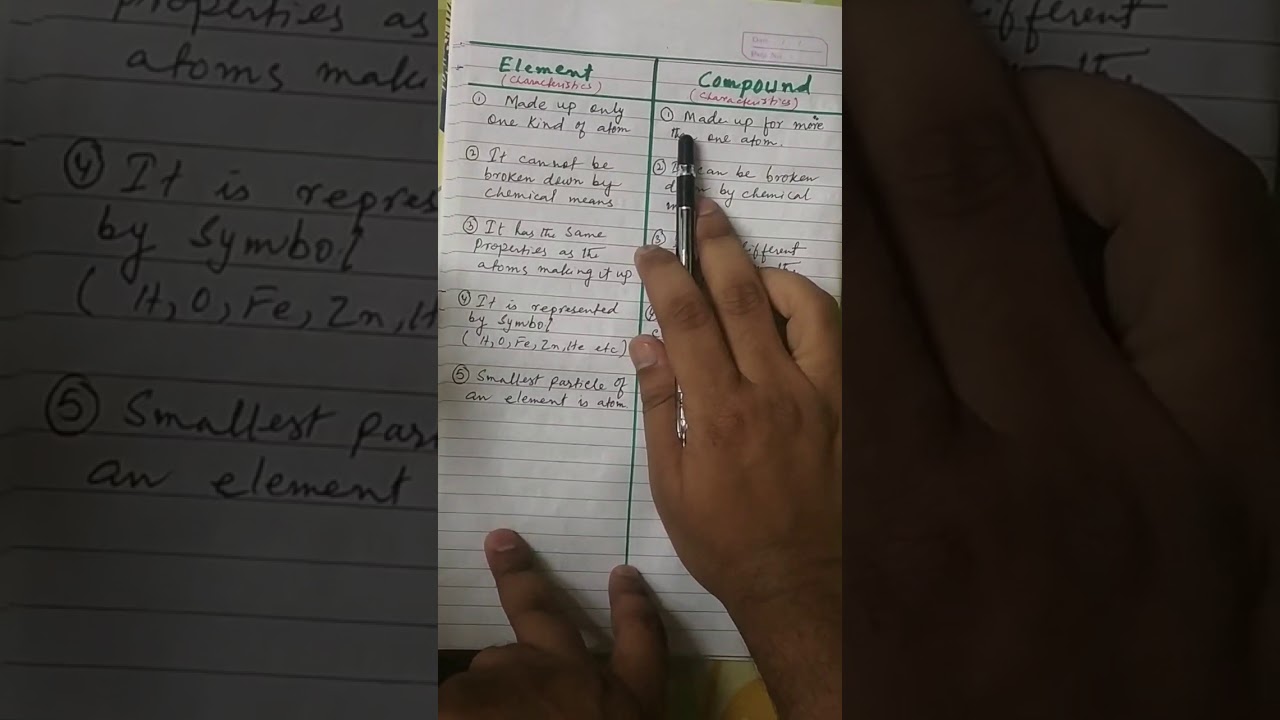 Element
(Characteristics)
① Made up only
one kind of atom
② It cannot be
broken down by
chemical means
③ It has the same
Properties as the
atoms making it up
④ It is represented
by Symbol
(H, O, Fe, Zn, He etc)
⑤ Smallest particle of
an element is atom
Compound
(Characteristics)
① Made up for more
one atom.
② can be broken
by chemical
③ different
the
properties as
atoms maki
④ It is repres
by Symbol
(H, O, Fe, Zn, H
⑤ Smallest par
an element
ifferent